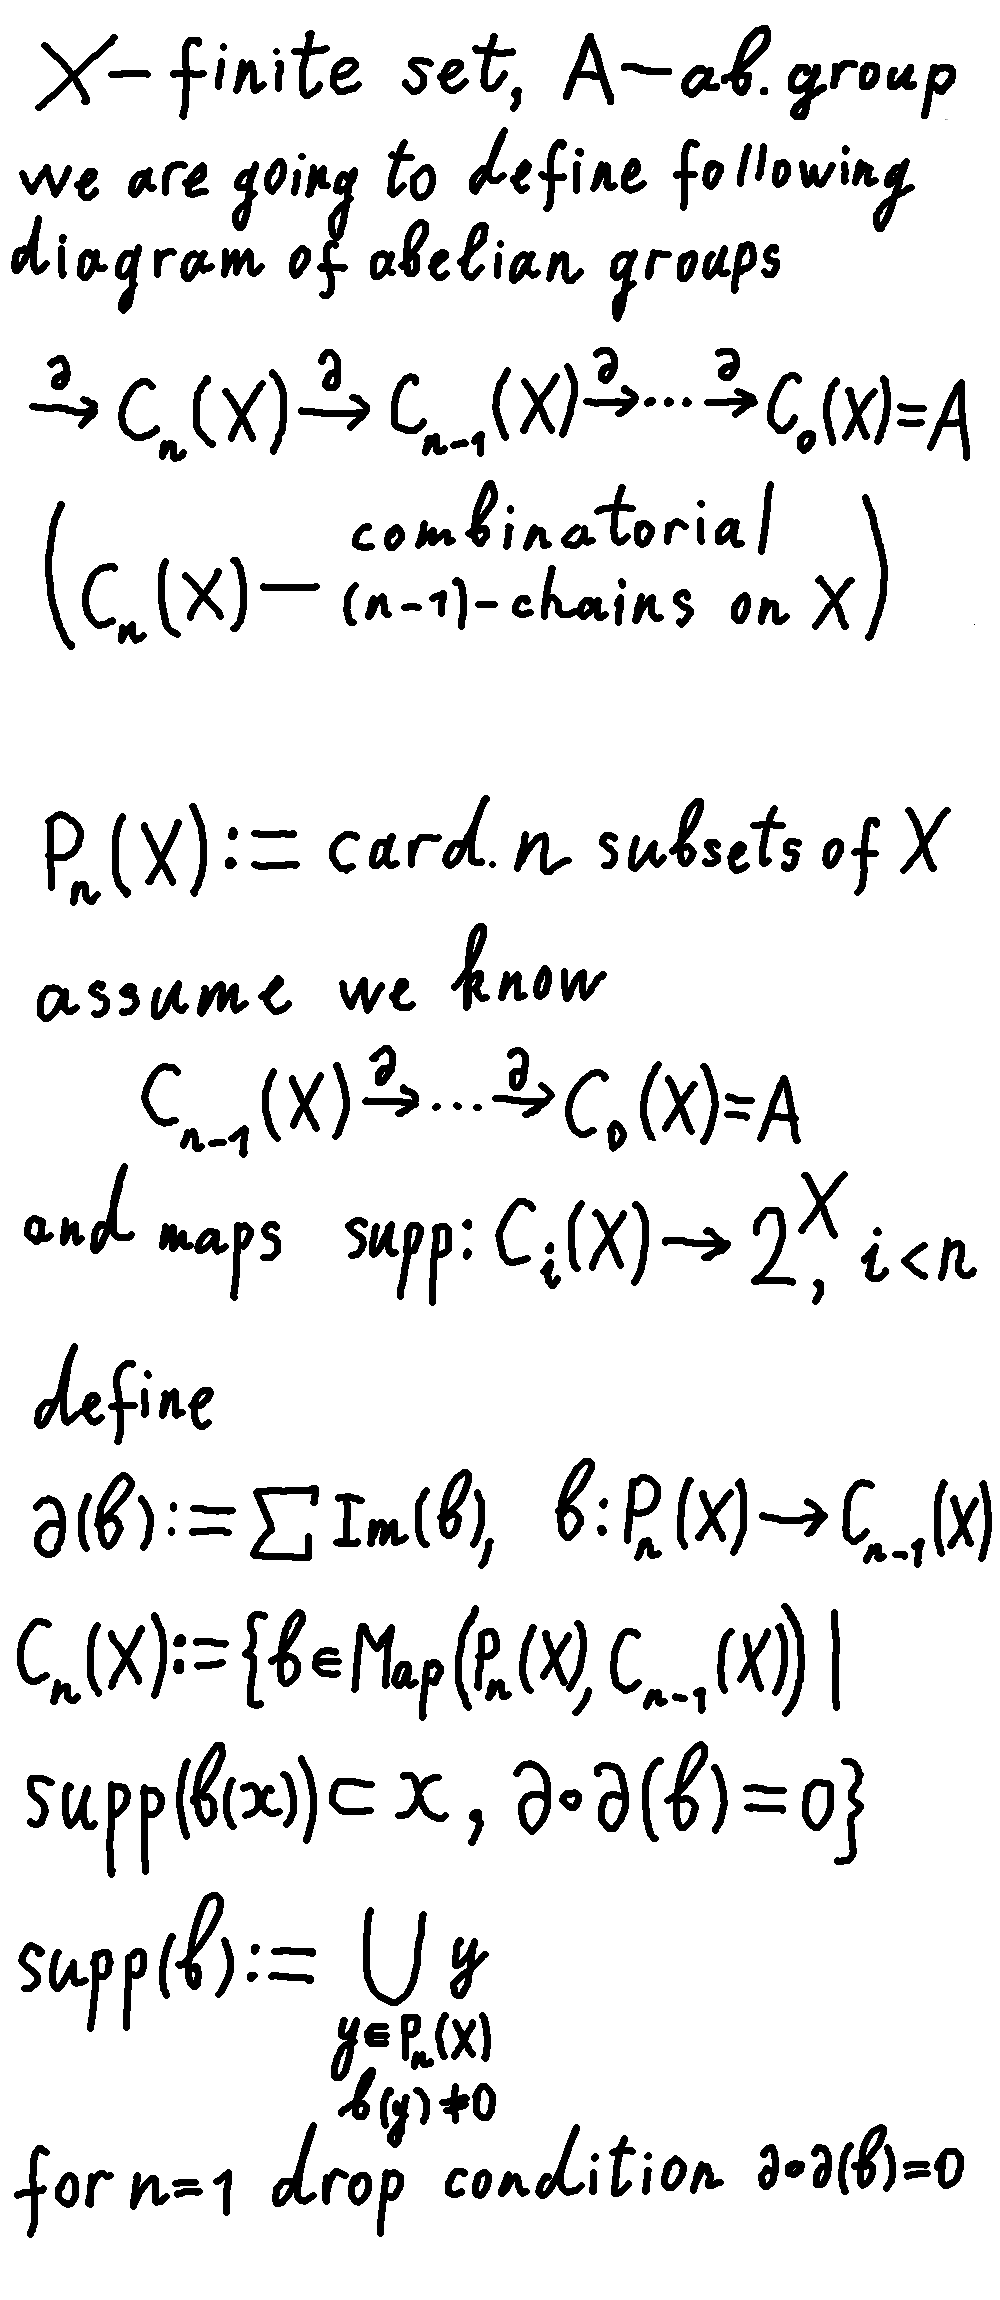 X — finite set, A — ab. group
we are going to define following
diagram of abelian groups
∂→ Cₙ(X) ∂→ Cₙ₋₁(X) ∂→ ··· ∂→ C₀(X)=A
(Cₙ(X) — combinatorial
(n-1)-chains on X)
Pₙ(X) := card. n subsets of X
assume we know
Cₙ₋₁(X) ∂→ ... ∂→ C₀(X)=A
and maps supp: Cᵢ(X) → 2^X, i<n
define
∂(b) := ∑ Im(b), b: Pₙ(X) → Cₙ₋₁(X)
Cₙ(X) := {b ∈ Map(Pₙ(X), Cₙ₋₁(X)) |
supp(b(x)) ⊂ x, ∂∘∂(b) = 0}
supp(b) := ⋃ y
y ∈ Pₙ(X)
b(y) ≠ 0
for n=1 drop condition ∂∘∂(b)=0